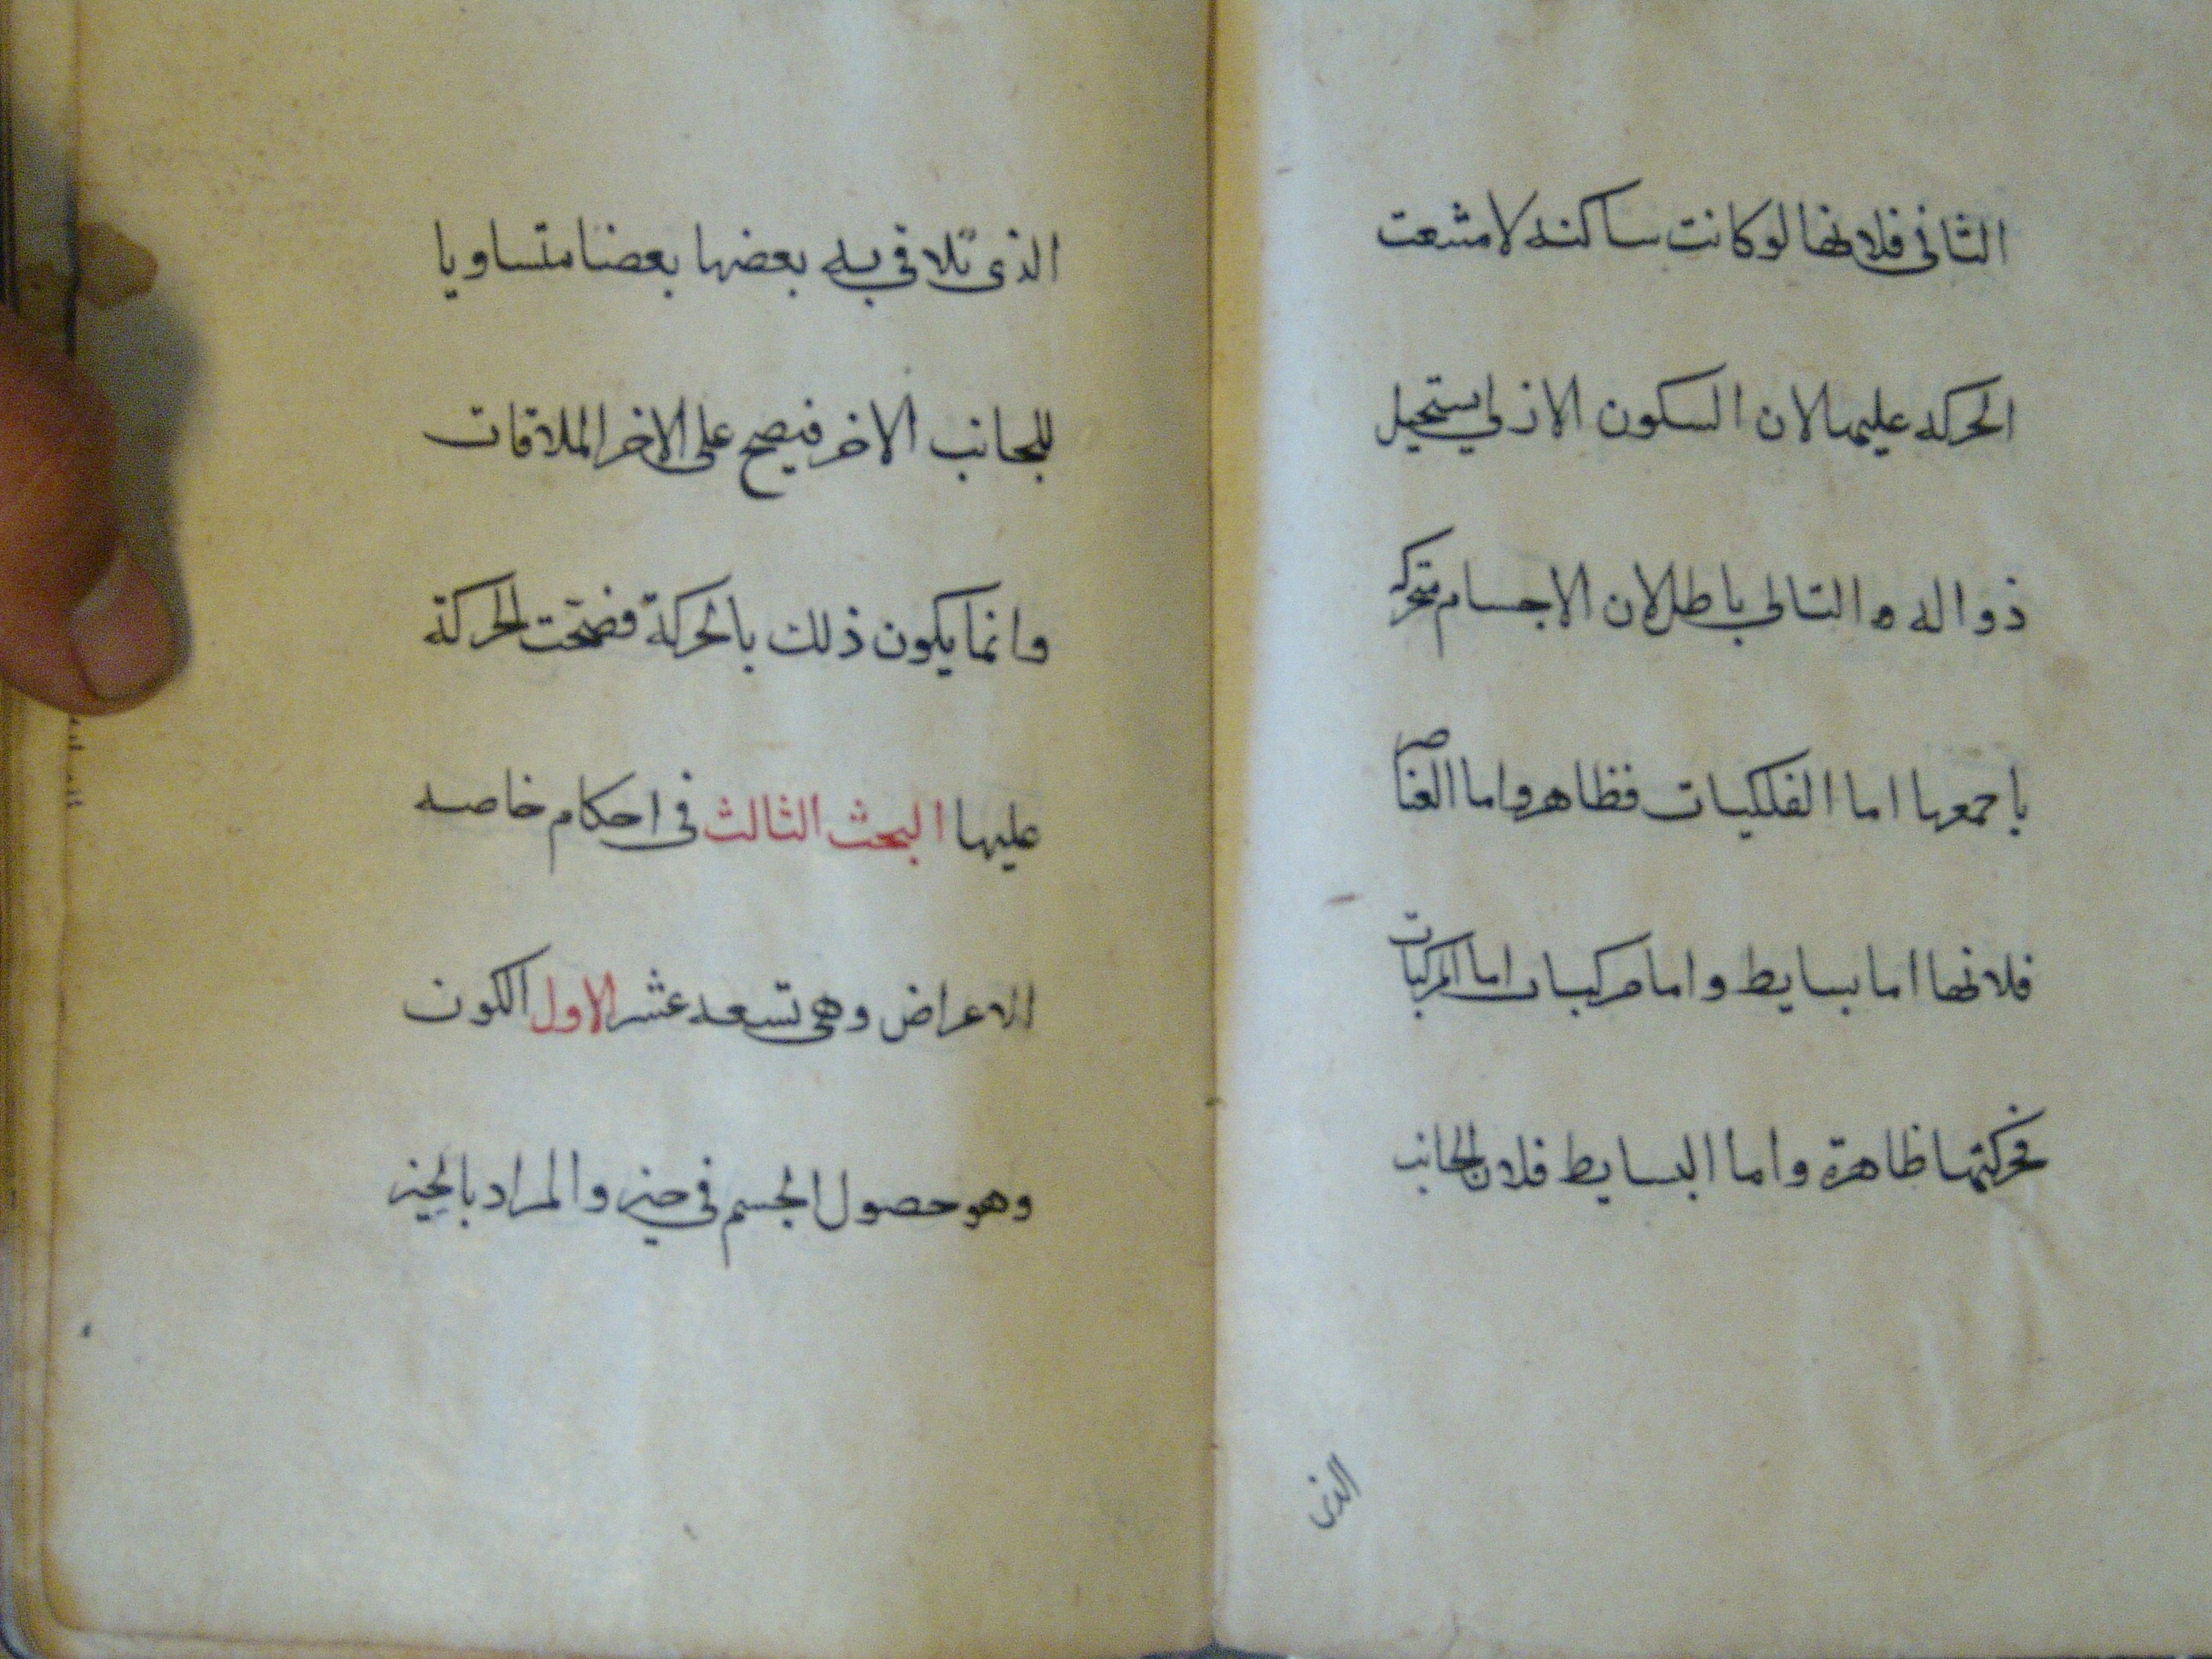 الثانى فلانها لو كانت ساكنه لامتنعت
الحركه عليها لان السكون الازلي يستحيل
زواله ه والتالي باطل لان الاجسام متحركه
باجمعها اما الفلكيات فظاهر واما العناصر
فلانها اما بسايط واما مركبات اما المركبات
فحركتها ظاهرة واما البسايط فلان الجانب
الذى
الذى تلاقي به بعضها بعضا متساويا
للجانب الاخر فيصح على الاخر الملاقات
وانما يكون ذلك بالحركة فصحت الحركة
عليها البحث الثالث فى احكام خاصه
الاعراض وهى تسعه عشر الاول الكون
وهو حصول الجسم في حيز والمراد بالحيز